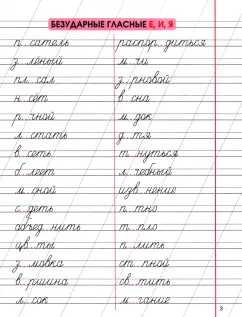 БЕЗУДАРНЫЕ ГЛАСНЫЕ Е, И, Я
п..сатель
з..лёный
пл..сал
н..сёт
р..чной
л..стать
в..сеть
б..леет
м..сной
с..деть
объед..нить
цв..ты
з..мовка
в..ршина
л..сок
распор..диться
м..чи
з..рновой
в..сна
м..док
д..тя
т..нуться
л..чебный
изв..нение
п..тно
т..пло
п..лить
ст..пной
св..тить
м..гание
3